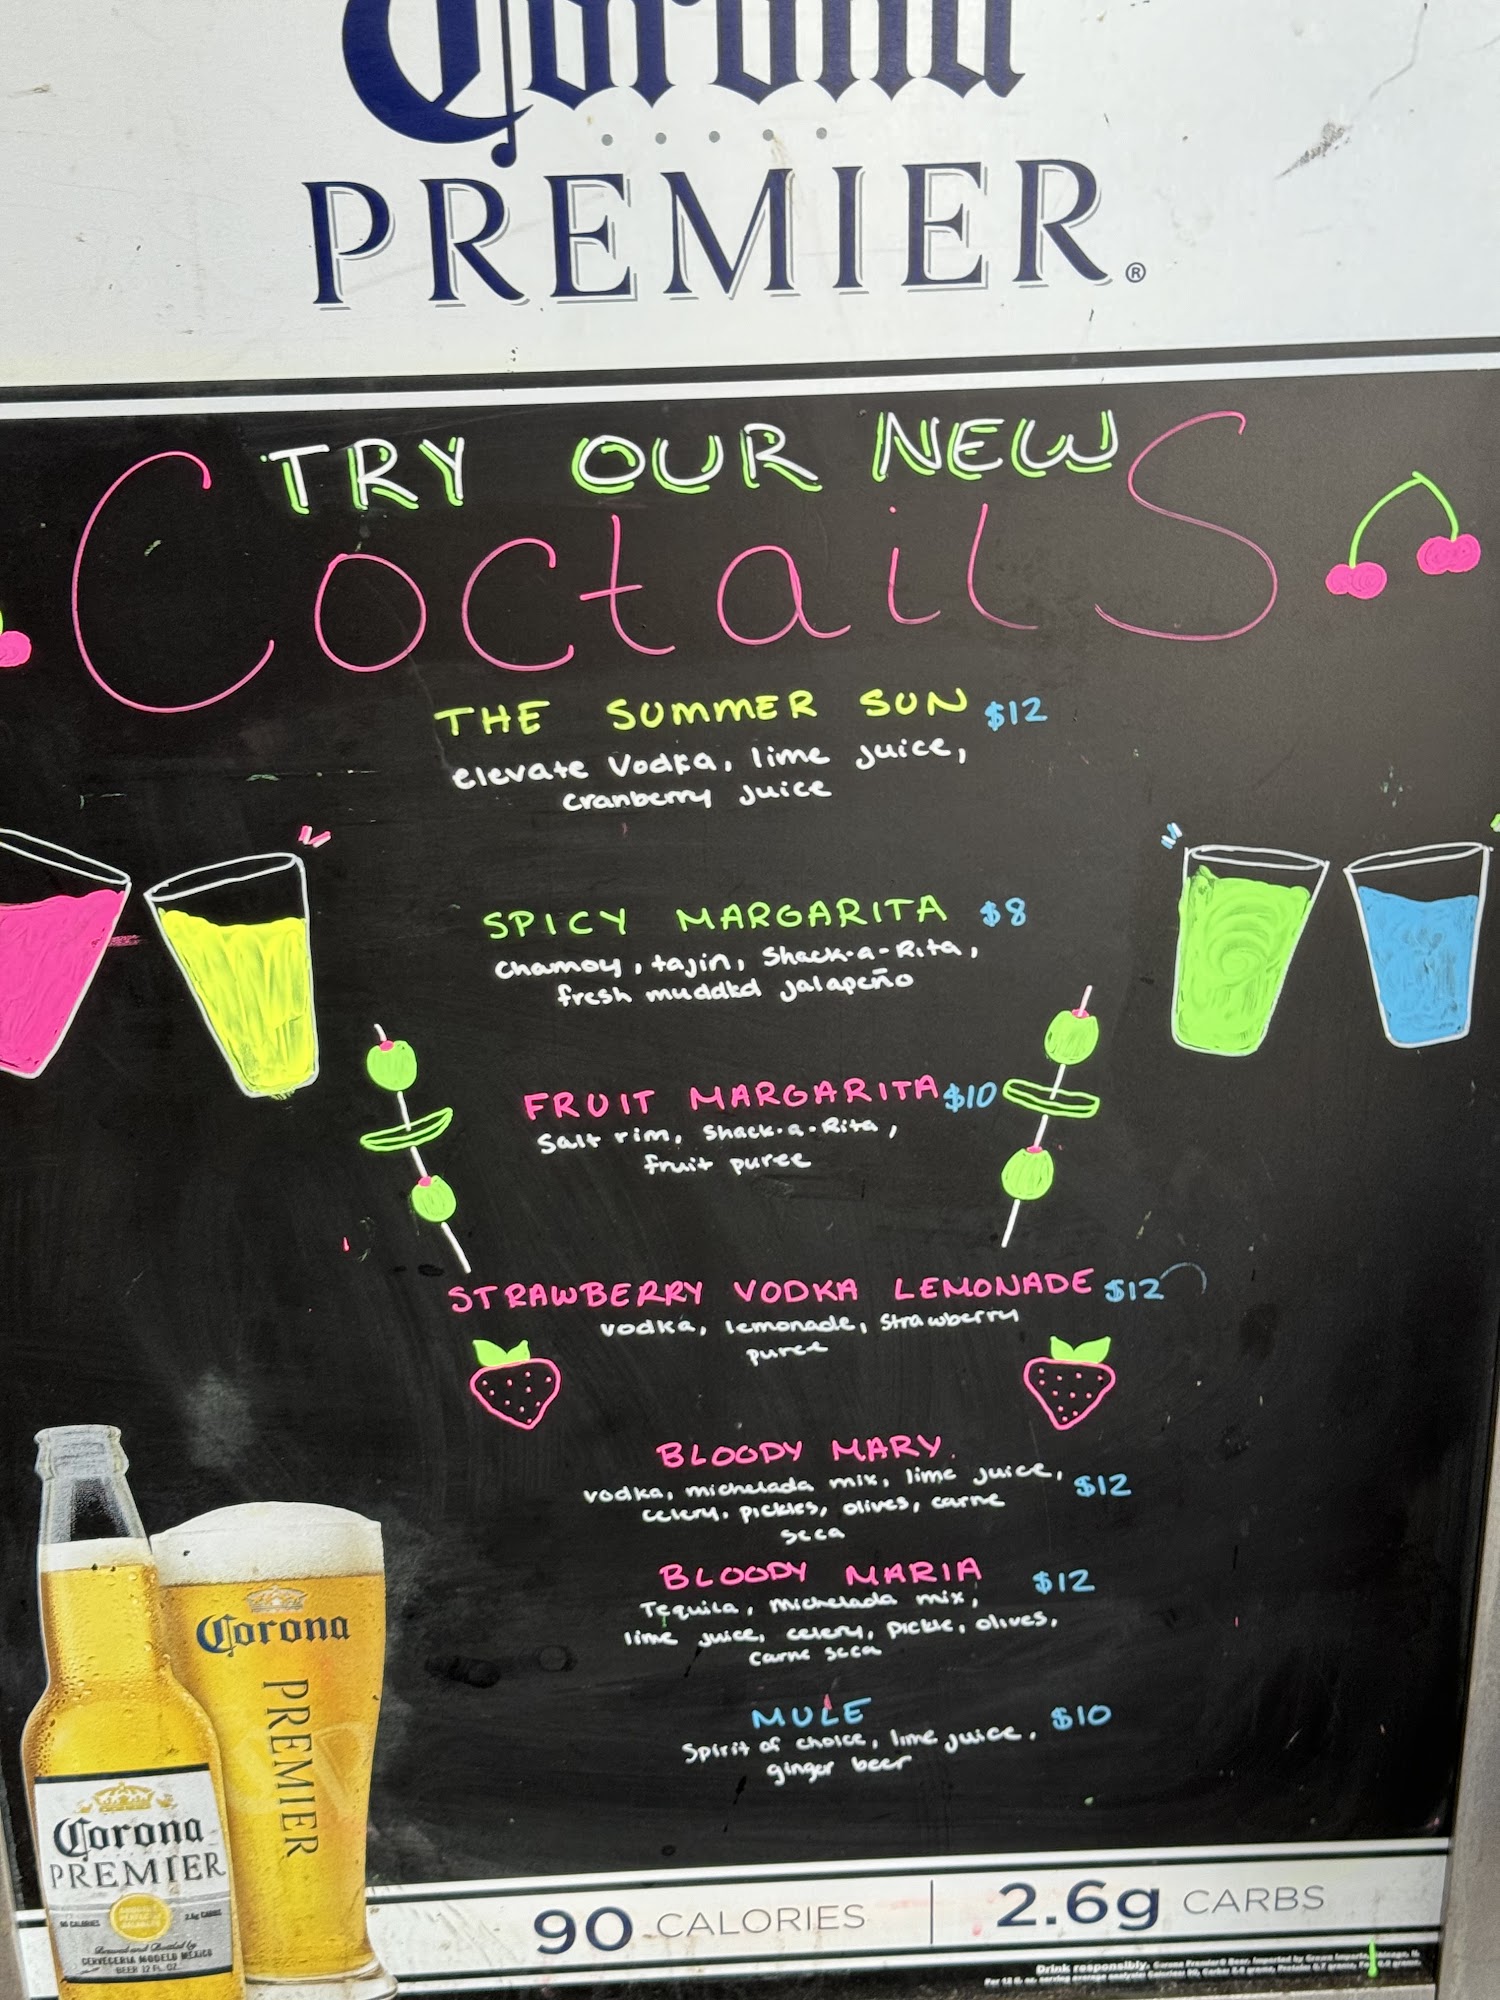 Corona
PREMIER®
TRY OUR NEW
CoctailS
THE SUMMER SUN $12
elevate Vodka, lime juice,
cranberry juice
SPICY MARGARITA $8
chamoy, tajin, Shack-a-Rita,
fresh muddled jalapeño
FRUIT MARGARITA $10
Salt rim, Shack-a-Rita,
fruit puree
STRAWBERRY VODKA LEMONADE $12
vodka, lemonade, strawberry
puree
BLOODY MARY
vodka, michelada mix, lime juice, $12
celery, pickles, olives, carne
seca
BLOODY MARIA $12
Tequila, michelada mix,
lime juice, celery, pickle, olives,
carne seca
MULE $10
Spirit of choice, lime juice,
ginger beer
Corona
PREMIER
Corona
PREMIER
90 CALORIES
2.6g CARBS
CERVECERIA MODELO MEXICO
BEER 12 FL. OZ.
90 CALORIES | 2.6g CARBS
Drink responsibly.